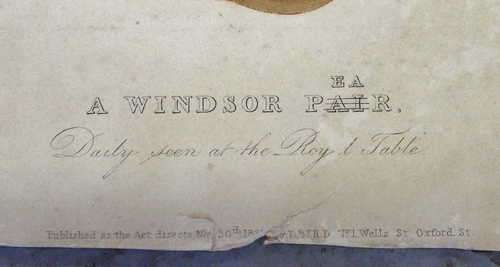 EA
A WINDSOR PAIR.
Daily seen at the Roy l Table
Published as the Act directs 30th Wells St. Oxford. St.